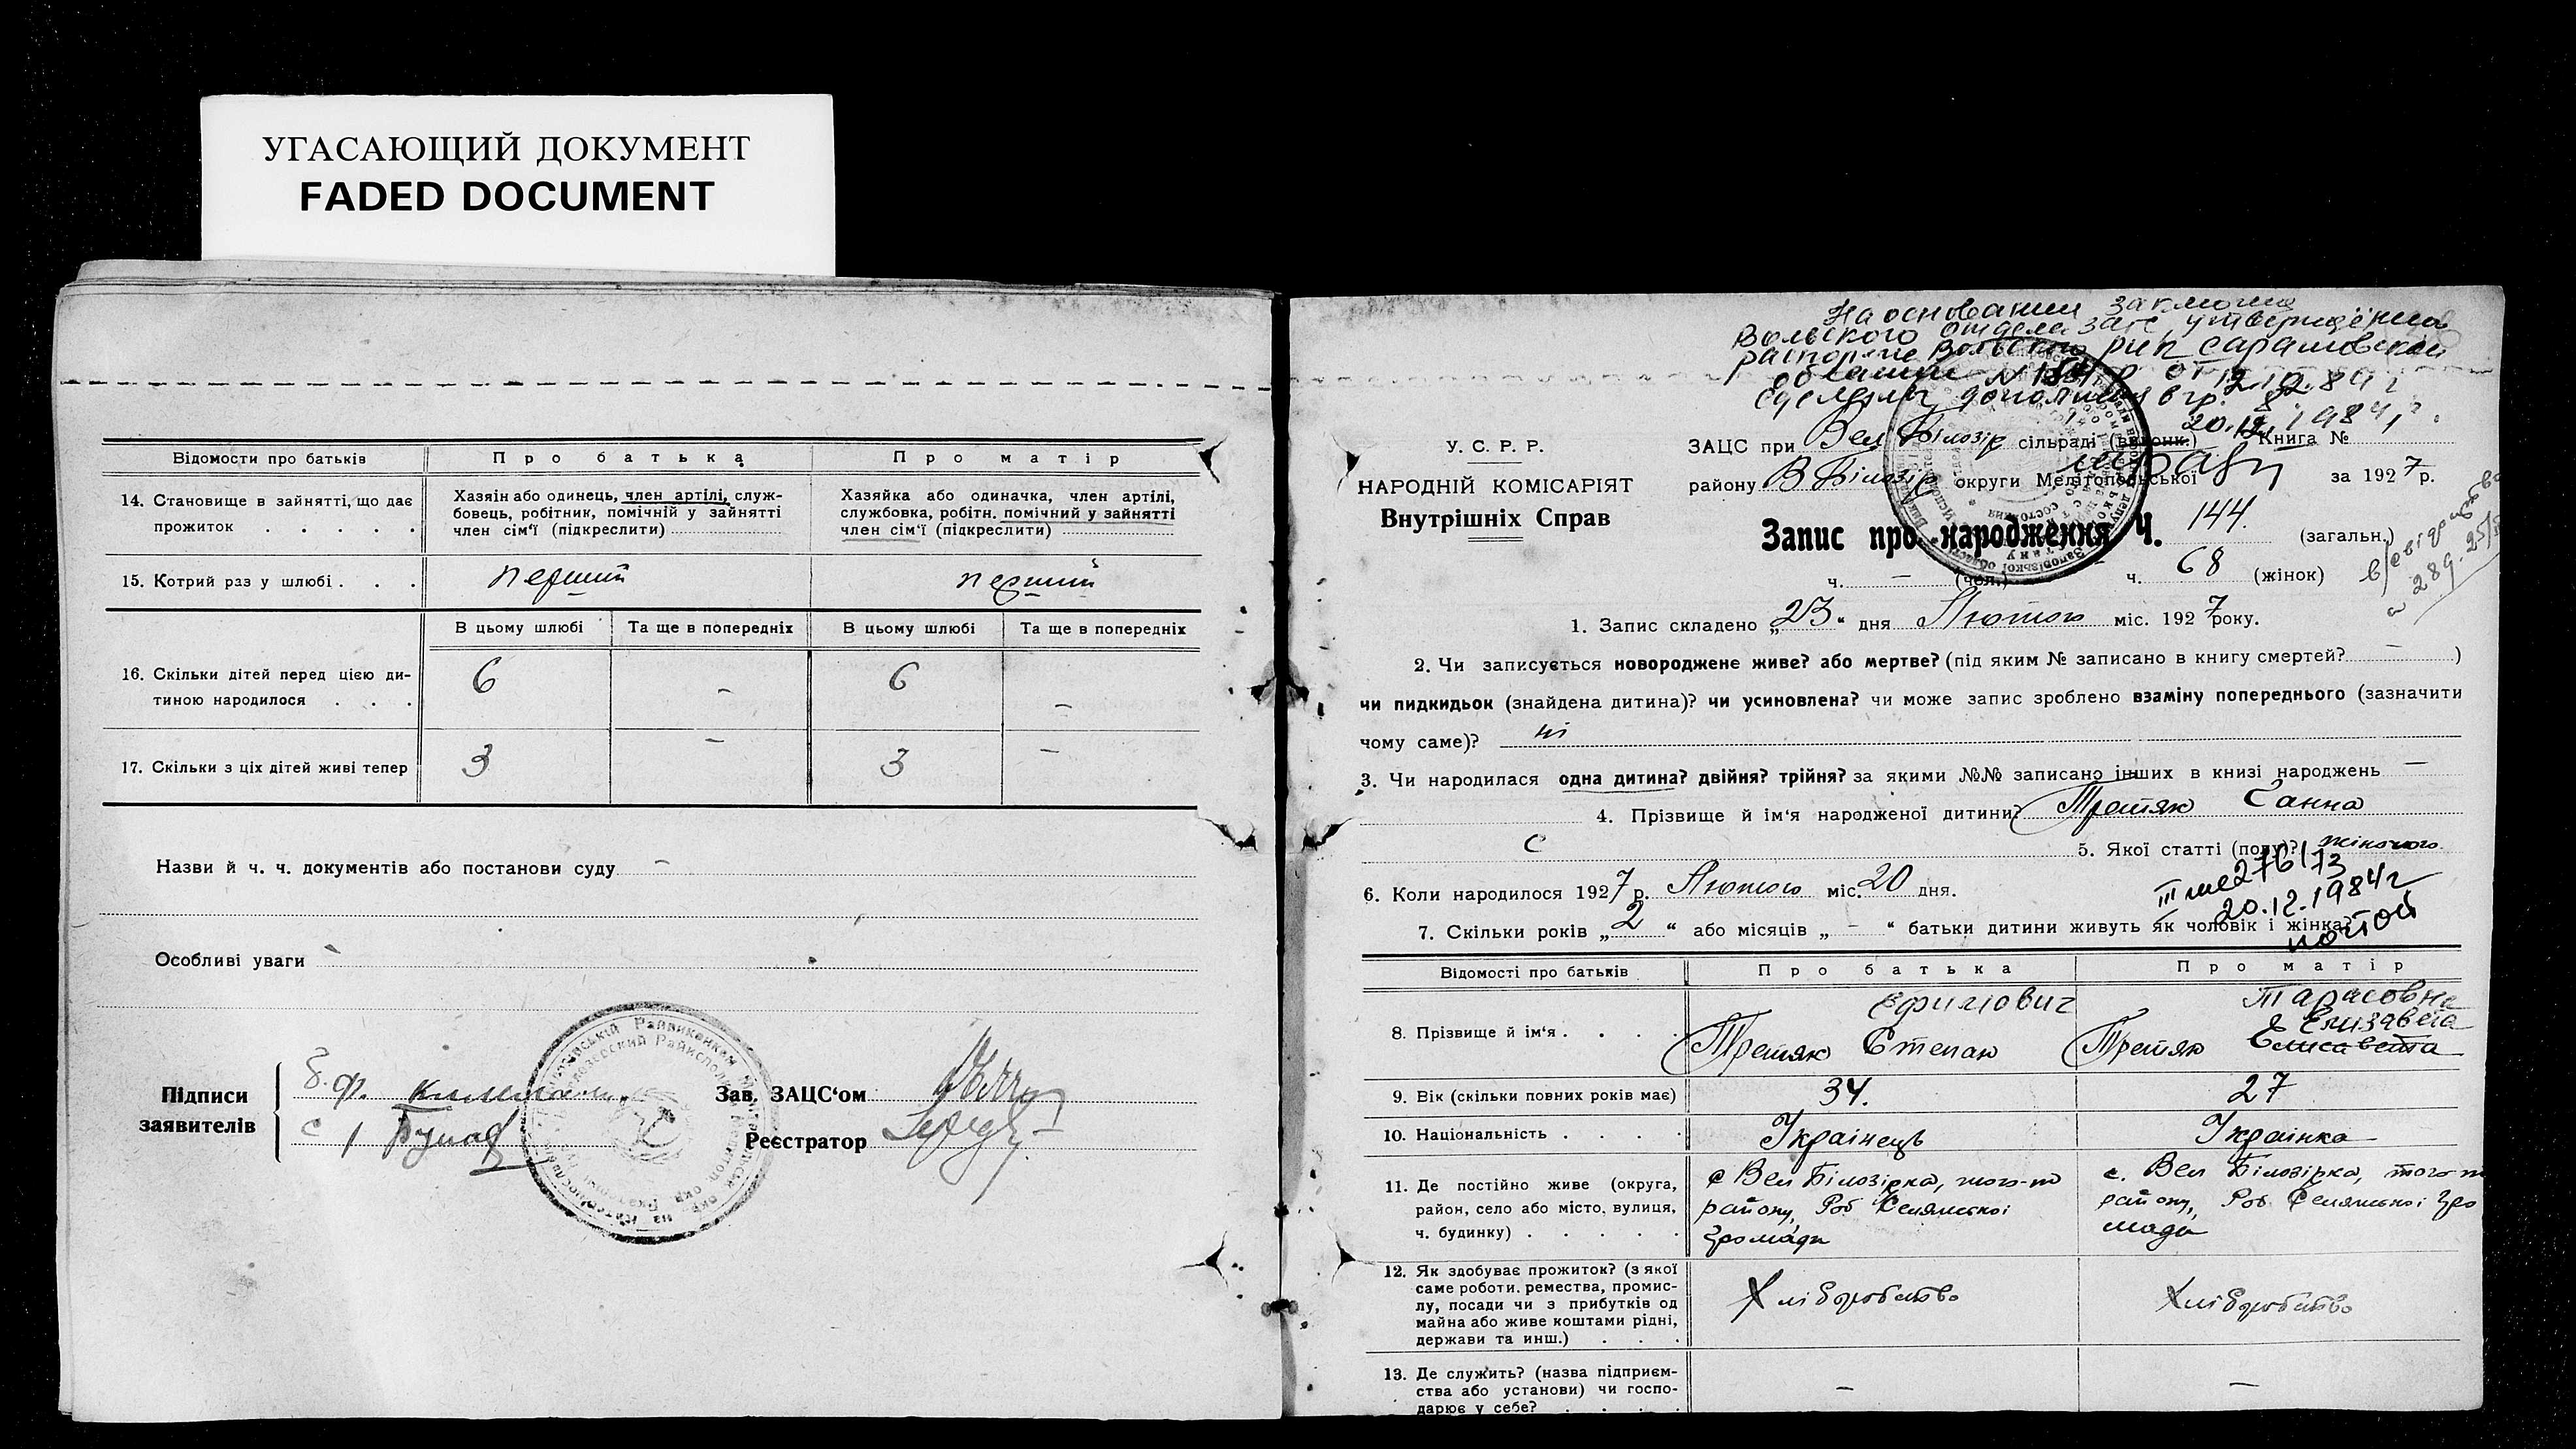 УГАСАЮЩИЙ ДОКУМЕНТ
FADED DOCUMENT
Відомости про батьків
Про батька
Про матір
14. Становище в зайнятті, що дає
прожиток . . . . .
Хазяін або одинець, член артілі, служ-
бовець, робітник, помічній у зайнятті
член сім'ї (підкреслити)
Хазяйка або одиначка, член артілі,
службовка, робітн. помічний у зайнятті
член сім'ї (підкреслити)
15. Котрий раз у шлюбі . . .
перший
перший
В цьому шлюбі
Та ще в попередніх
В цьому шлюбі
Та ще в попередніх
16. Скільки дітей перед цією ди-
тиною народилося . . .
6
–
6
–
17. Скільки з ціх дітей живі тепер
3
–
3
–
Назви й ч. ч. документів або постанови суду –
Особливі уваги
Підписи
заявителів
Зав. ЗАЦС'ом
Реєстратор
На основании заключ
Вольского отдела загс, утвержденна
Вольского рик Саратовской
области от 12.12.84 г
дополнен в гр. 8.
20.12.1984 г.
У. С. Р. Р.
НАРОДНІЙ КОМІСАРІЯТ
Внутрішніх Справ
ЗАЦС при Вел Білозір сільраді (виконк.) Книга №
району В Білозір округи Мелітопольської за 1927 р.
Запис про народження Ч. 144. (загальн.)
ч. – (чол.) ч. 68 (жінок)
1. Запис складено „23“ дня Лютого міс. 1927 року.
2. Чи записується новороджене живе? або мертве? (під яким № записано в книгу смертей? – )
чи пидкидьок (знайдена дитина)? чи усиновлена? чи може запис зроблено взаміну попереднього (зазначити
чому саме)? ні
3. Чи народилася одна дитина? двійня? трійня? за якими №№ записано інших в книзі народжень –
4. Прізвище й ім'я народженої дитини? Третяк Ганна
С
5. Якої статті (полу)? жіночого
6. Коли народилося 1927 р. Лютого міс. 20 дня.
276173
20.12.1984 г
7. Скільки років „2“ або місяців „ – “ батьки дитини живуть як чоловік і жінка?
Відомості про батьків
Про батька
Про матір
8. Прізвище й ім'я . . . .
Ефимович
Третяк Степан
Тарасовна
Елизавета
Третяк Елисавета
9. Вік (скільки повних років має)
34.
27
10. Національність . . . .
Українець
Українка
11. Де постійно живе (округа,
район, село або місто, вулиця,
ч. будинку) . . . . .
с Вел Білозірка, того-ж
району, Роб Селянської
громади
с. Вел Білозірка, того-ж
району, Роб Селянської гро
мади
12. Як здобуває прожиток? (з якої
саме роботи. ремества, промис-
лу, посади чи з прибутків од
майна або живе коштами рідні,
держави та инш.) . . .
Хліборобство
Хліборобство
13. Де служить? (назва підприєм-
ства або установи) чи госпо-
дарює у себе? . . . .
–
–